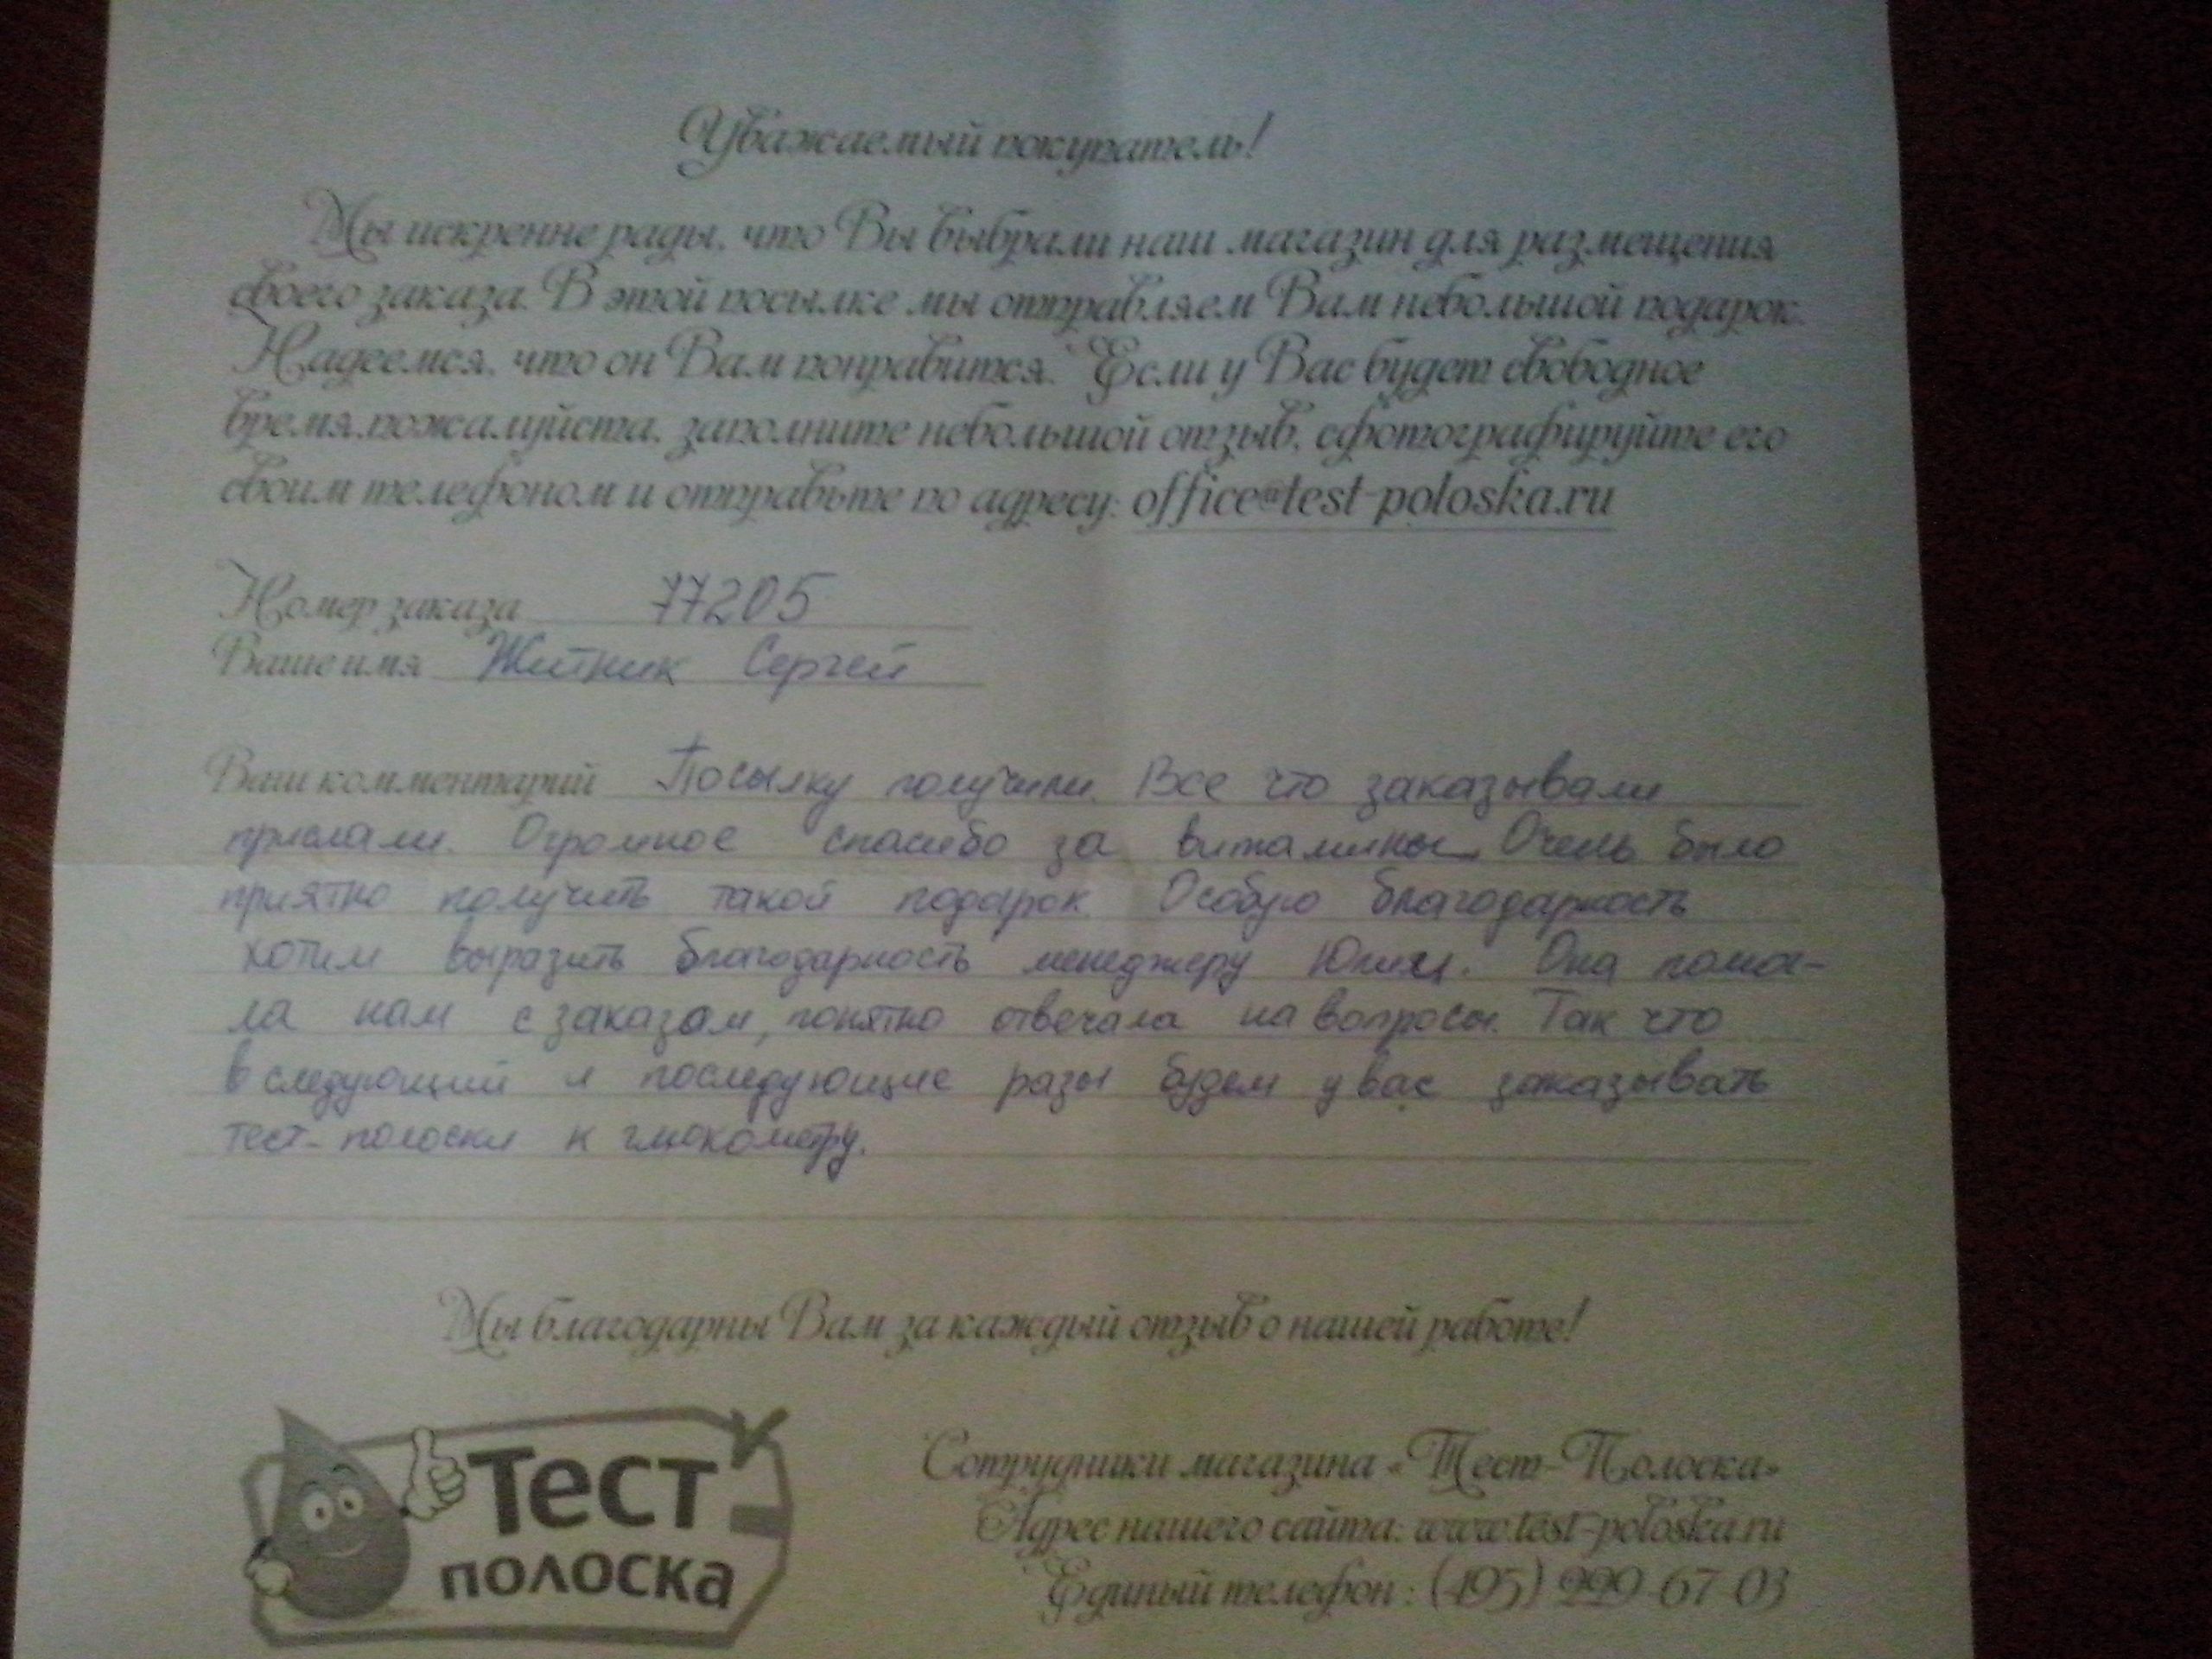 Уважаемый покупатель!
Мы искренне рады, что Вы выбрали наш магазин для размещения
своего заказа. В этой посылке мы отправляем Вам небольшой подарок.
Надеемся, что он Вам понравится. Если у Вас будет свободное
время, пожалуйста, заполните небольшой отзыв, сфотографируйте его
своим телефоном и отправьте по адресу: office@test-poloska.ru
Номер заказа 77205
Ваше имя Житник Сергей
Ваш комментарий Посылку получили. Все что заказывали
прислали. Огромное спасибо за витамины. Очень было
приятно получить такой подарок. Особую благодарность
хотим выразить благодарность менеджеру Юлии. Она помог-
ла нам с заказом, понятно отвечала на вопросы. Так что
в следующий и последующие разы будем у вас заказывать
тест-полоски к глюкометру.
Мы благодарны Вам за каждый отзыв о нашей работе!
Тест
полоска
Сотрудники магазина «Тест-Полоска»
Адрес нашего сайта: www.test-poloska.ru
Единый телефон: (495) 999-67-03